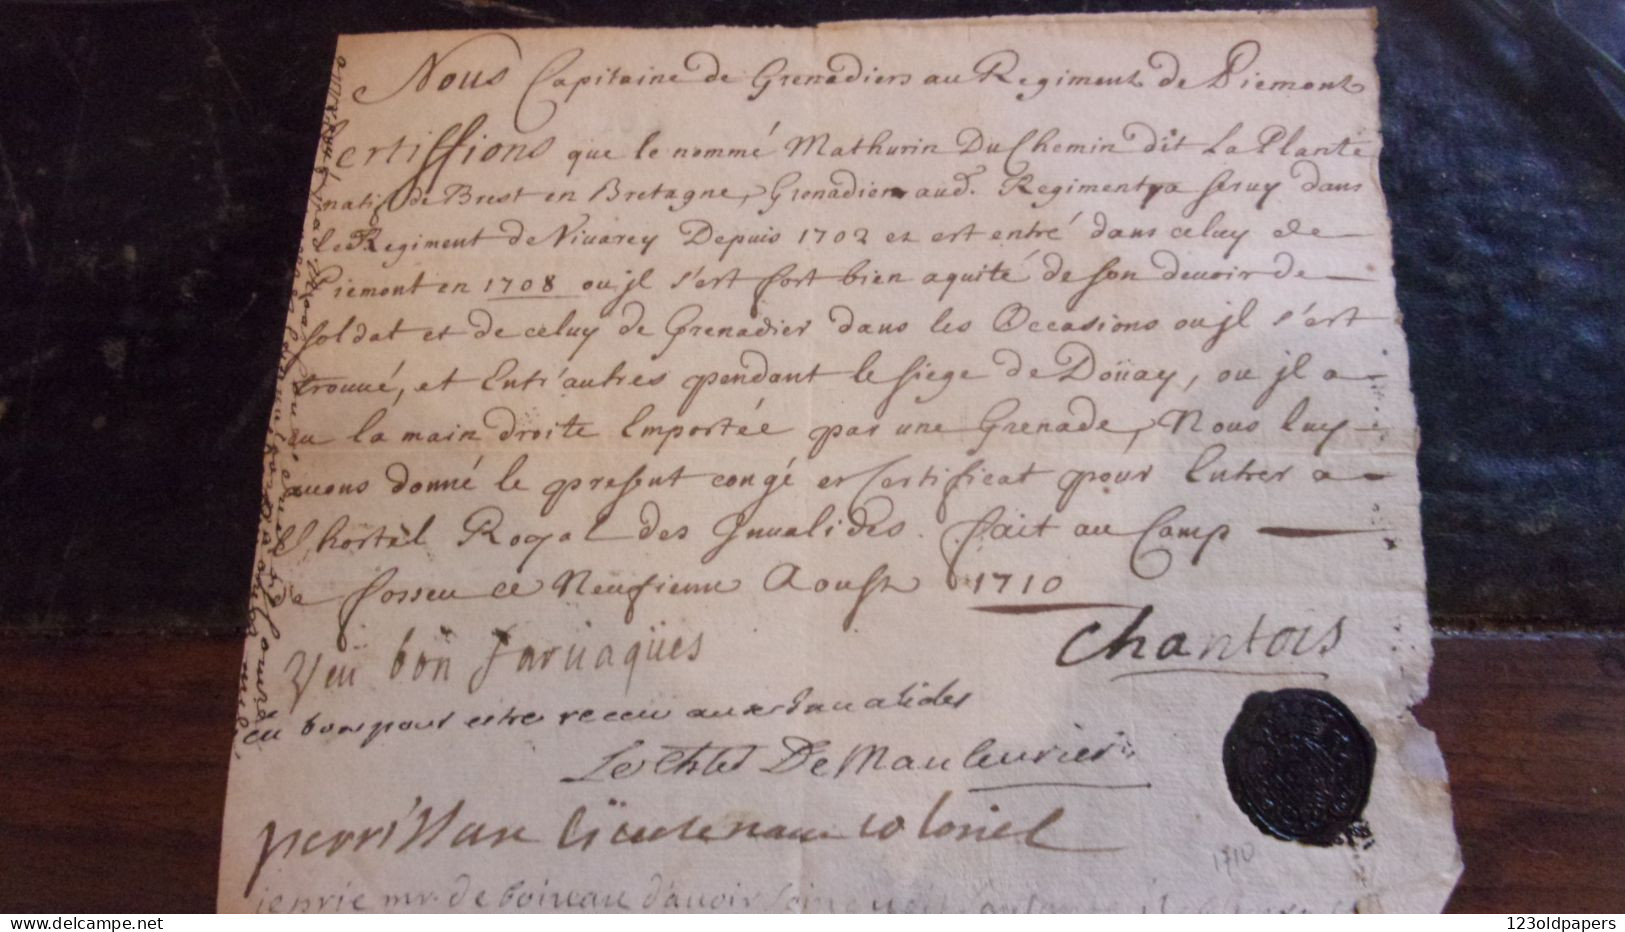 Nous Capitaine de Grenadiers au Regiment de Piemont
Certiffions que le nommé Mathurin Du Chemin dit La Plante
natif de Brest en Bretagne, Grenadier aud. Regiment, a seruy dans
le Regiment de Viuarey Depuis 1702 et est entré dans celuy de
Piemont en 1708 ou jl s'est fort bien aquité de son deuoir de
soldat et de celuy de Grenadier dans les Occasions ou jl s'est
trouué, et Entr'autres pendant le siege de Doüay, ou jl a
eu la main droite Emportée par une Grenade, Nous luy
auons donné le present congé et Certificat pour Entrer a
L'hostel Royal des Jnualides. fait au Camp
de fosseu ce Neufieme Aoust 1710
Chantois
Veü bon Jarnaqües
eu bon pour estre receu aux Inualides
Le De Mauleurier
lieutenant colonel
1710
je prie mr. de boiveau d'auoir soin
CLOSE
123oldpapers